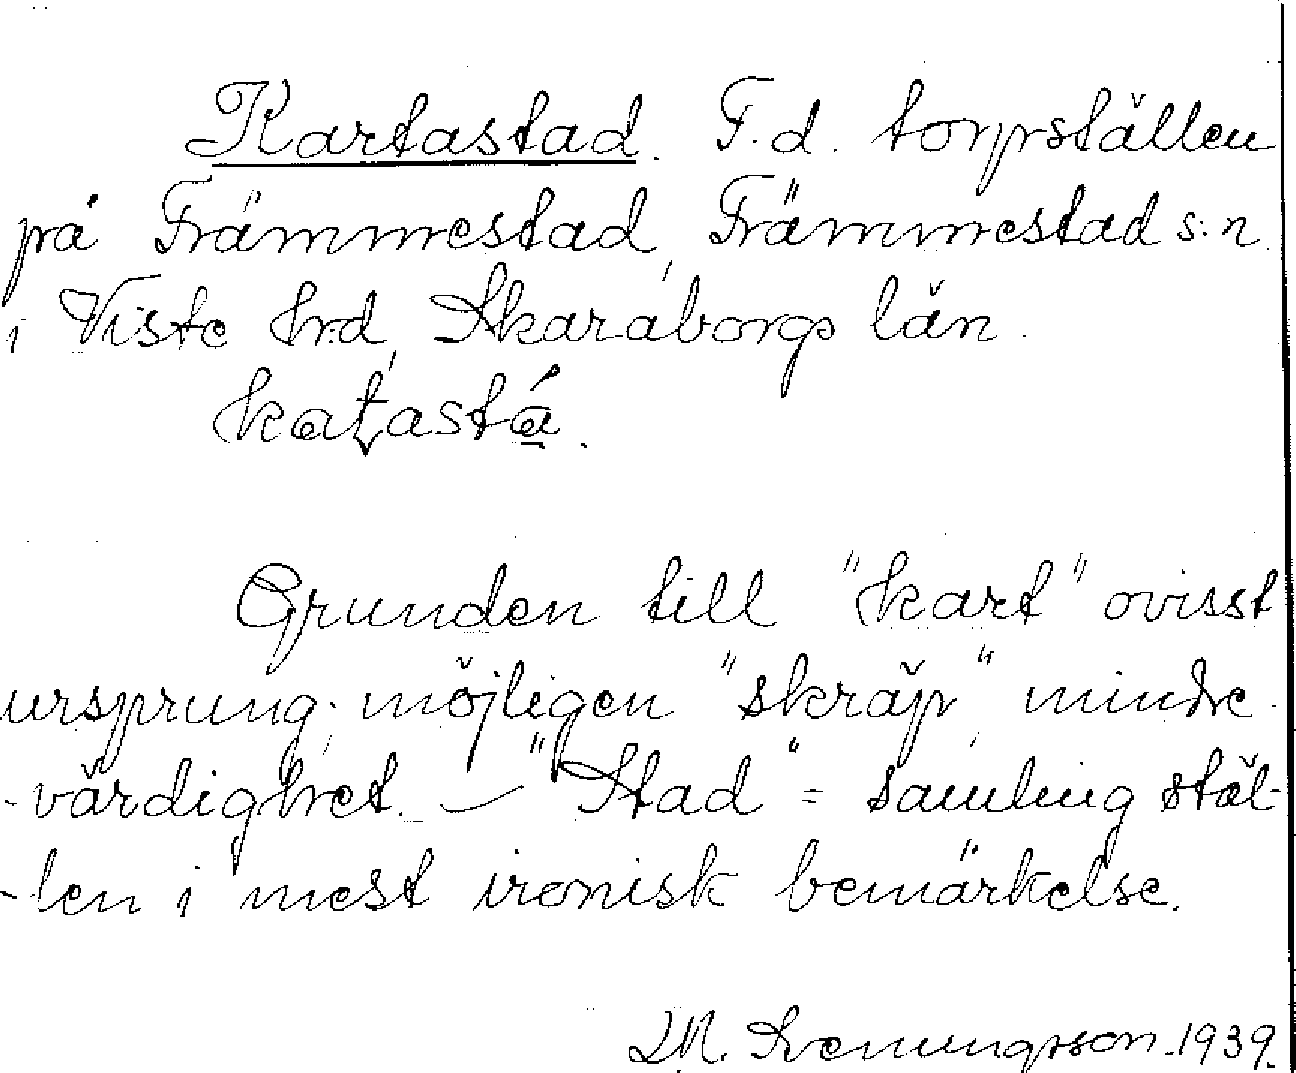 Kartastad. F.d. torpställen
på Främmestad, Främmestad s:n.
i Viste hrd, Skaraborgs län.
kaţastá̱.
Grunden till "kart" ovisst
ursprung; möjligen "skräp", minde-
-värdighet. — "Stad" = samling stäl-
-len i mest ironisk bemärkelse.
M. Svenungsson. 1939.